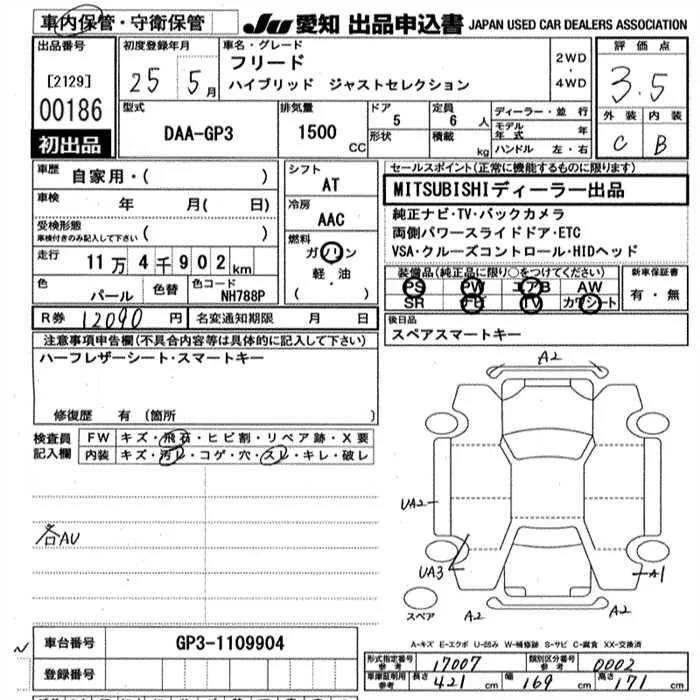 車内保管・守衛保管 JU 愛知 出品申込書 JAPAN USED CAR DEALERS ASSOCIATION
出品番号 初度登録年月 車名・グレード 評価点
[2129] 25 5月 フリード 2WD・4WD 3.5
ハイブリッド ジャストセレクション
00186 型式 排気量 ドア 定員 ディーラー・並行 外装 内装
DAA-GP3 1500 CC 5 6人 モデル年式 年
初出品 形状 積載 kg ハンドル 左・右 C B
車歴 自家用・( ) シフト セールスポイント(正常に機能するものに限ります)
AT MITSUBISHIディーラー出品
車検 年 月( 日) 冷房
AAC 純正ナビ・TV・バックカメラ
受検形態 両側パワースライドドア・ETC
車検付きのみ記入して下さい ( ) 燃料 VSA・クルーズコントロール・HIDヘッド
走行 11万4千902km ガソリン
軽・油 装備品(純正品に限り○をつけてください) 新車保証書
色 パール 色替 色コード NH788P ( ) PS PW エアB AW 有・無
SR ナビ TV カワシート
R券 12090円 名変通知期限 月 日 後日品
注意事項申告欄(不具合内容等は具体的に記入して下さい) スペアスマートキー
ハーフレザーシート・スマートキー
修復歴 有(箇所 )
検査員記入欄 FW キズ・飛石・ヒビ割・リペア跡・X要
内装 キズ・汚レ・コゲ・穴・スレ・キレ・破レ
A2
UA2
各AU
UA3 A1
スペア A2 A2
A-キズ E-エクボ U-凹み W-補修跡 S-サビ C-腐食 XX-交換済
車台番号 GP3-1109904
形式指定番号 参考 17007 類別区分番号 参考 0002
登録番号 車庫証明用 参考 長さ 421 cm 幅 169 cm 高さ 171 cm